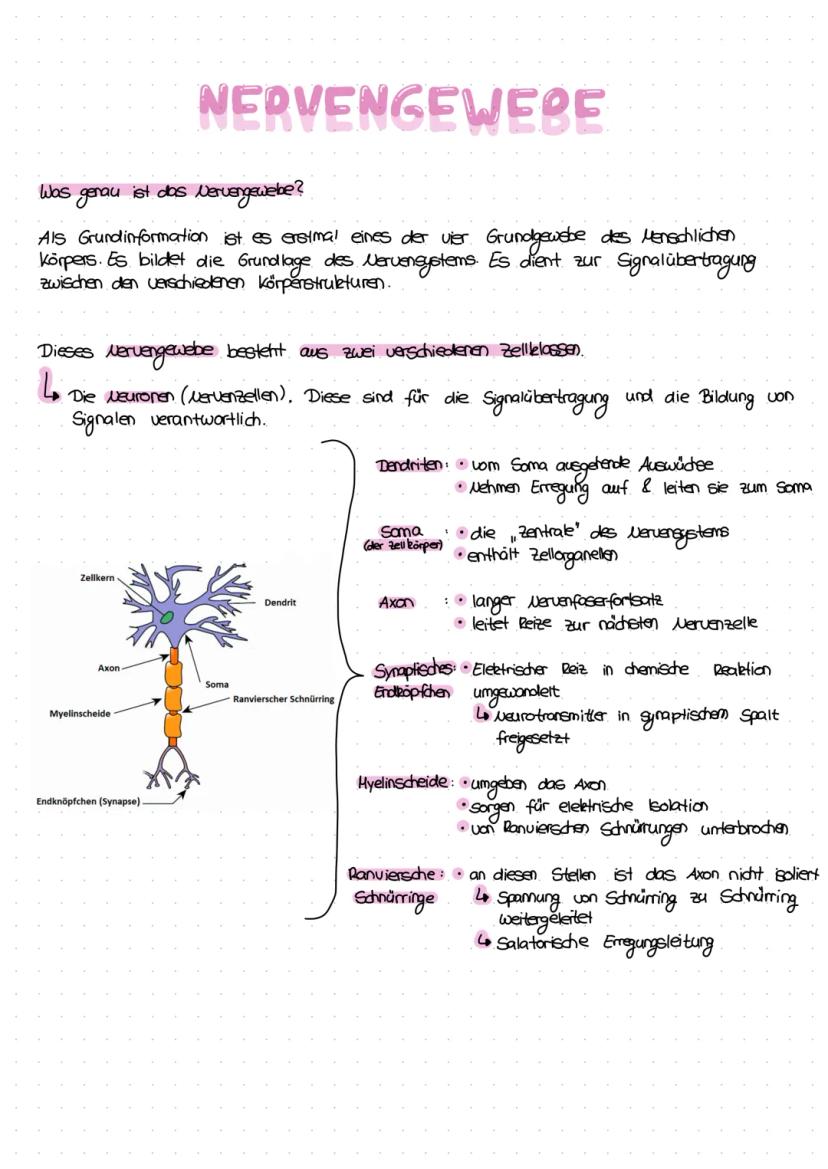 NERVENGEWEBE
Was genau ist das Nervengewebe?
Als Grundinformation ist es erstmal eines der vier Grundgewebe des Menschlichen
Körpers. Es bildet die Grundlage des Nervensystems. Es dient zur Signalübertragung
zwischen den verschiedenen Körperstrukturen.
Dieses Nervengewebe besteht aus zwei verschiedenen Zellklassen.
↳ Die Neuronen (Nervenzellen). Diese sind für die Signalübertragung und die Bildung von
Signalen verantwortlich.
Zellkern
Dendrit
Axon
Soma
Ranvierscher Schnürring
Myelinscheide
Endknöpfchen (Synapse)
Dendriten: • vom Soma ausgehende Auswüchse
• Nehmen Erregung auf & leiten sie zum Soma
Soma : • die „Zentrale" des Nervensystems
(der Zellkörper) • enthält Zellorganellen
Axon : • langer Nervenfaserfortsatz
• leitet Reize zur nächsten Nervenzelle
Synaptisches: • Elektrischer Reiz in chemische Reaktion
Endköpfchen umgewandelt
↳ Neurotransmitter in synaptischem Spalt
freigesetzt
Myelinscheide: • umgeben das Axon
• sorgen für elektrische Isolation
• von Ranvierschen Schnürrungen unterbrochen
Ranviersche: • an diesen Stellen ist das Axon nicht isoliert
Schnürringe ↳ Spannung von Schnürring zu Schnürring
weitergeleitet
↳ Salatorische Erregungsleitung